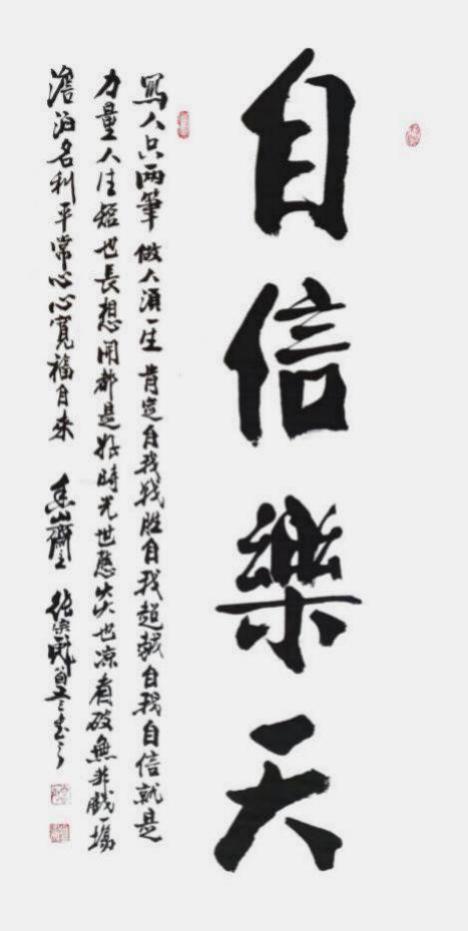 自信樂天
寫人只兩筆做人須一生肯定自我戰勝自我超越自我自信就是
力量人生短也長想開都是好時光世態炎也涼看破無非戲一場
澹泊名利平常心心寬福自來 香山齋主 張